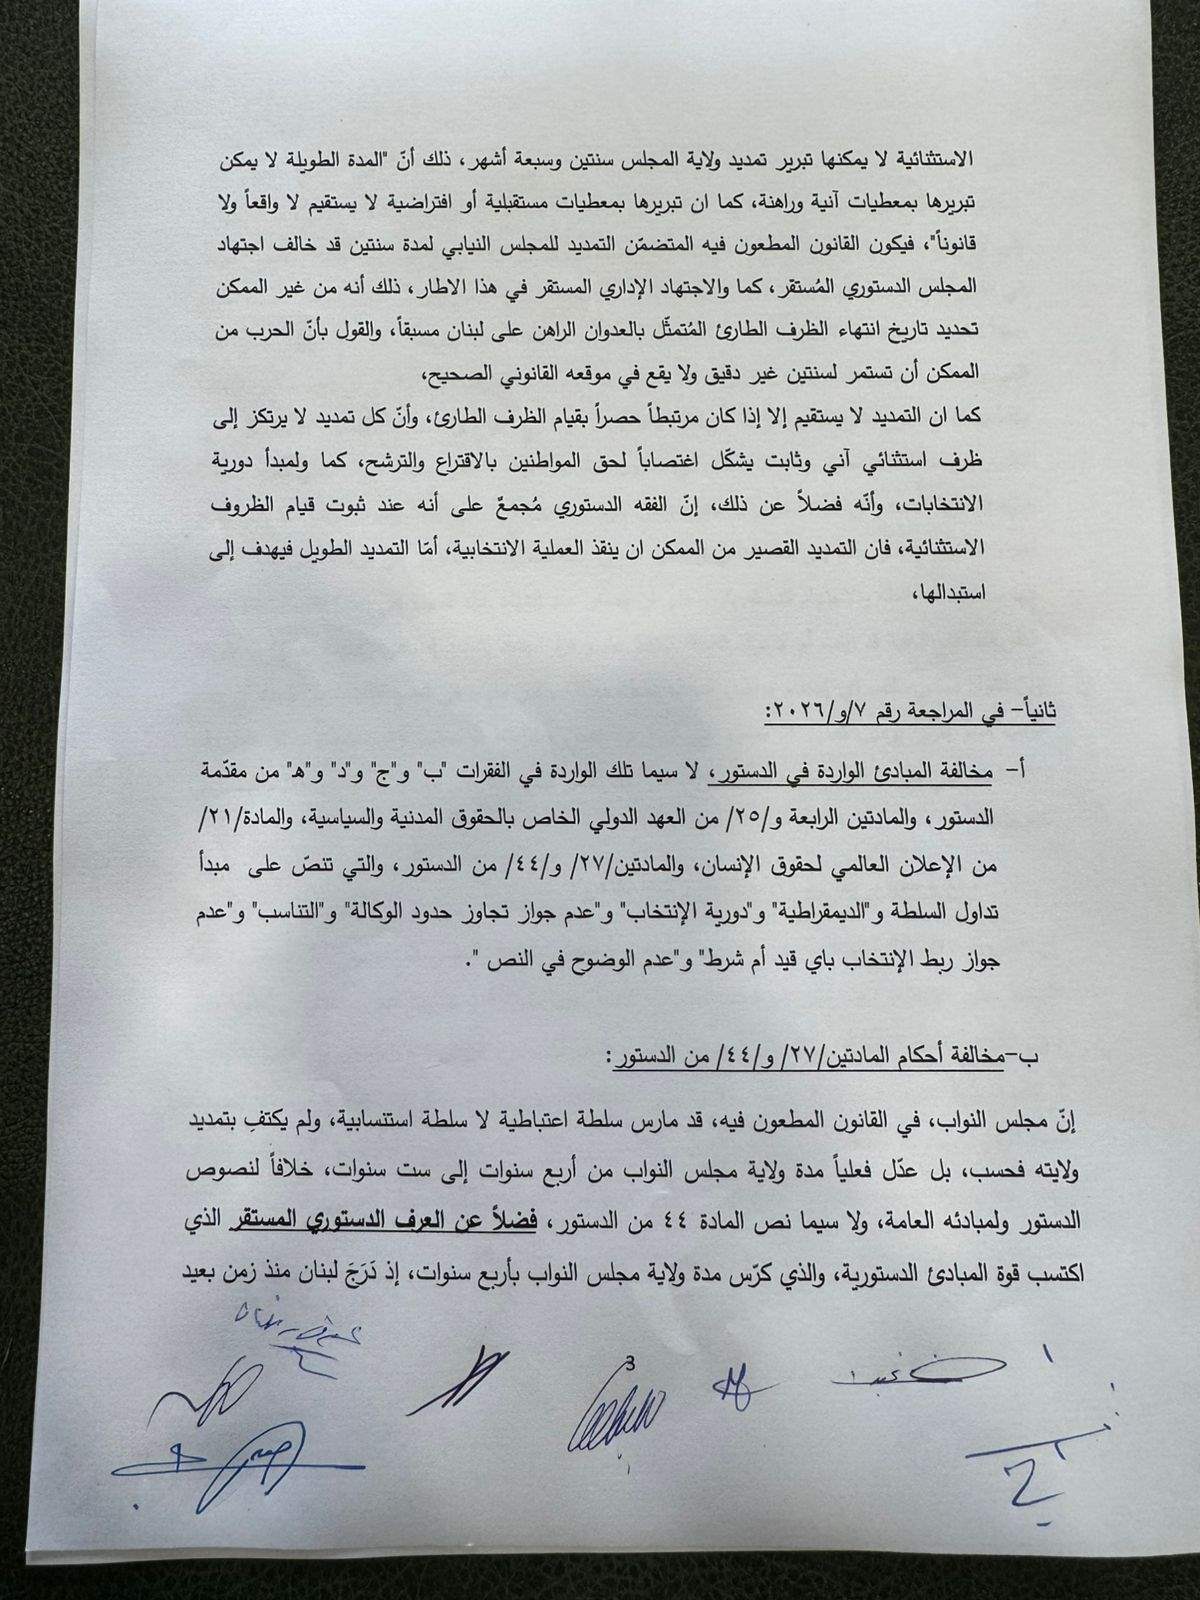 الاستثنائية لا يمكنها تبرير تمديد ولاية المجلس سنتين وسبعة أشهر، ذلك أنّ "المدة الطويلة لا يمكن
تبريرها بمعطيات آنية وراهنة، كما ان تبريرها بمعطيات مستقبلية أو افتراضية لا يستقيم لا واقعاً ولا
قانوناً"، فيكون القانون المطعون فيه المتضمّن التمديد للمجلس النيابي لمدة سنتين قد خالف اجتهاد
المجلس الدستوري المُستقر، كما والاجتهاد الإداري المستقر في هذا الاطار، ذلك أنه من غير الممكن
تحديد تاريخ انتهاء الظرف الطارئ المُتمثّل بالعدوان الراهن على لبنان مسبقاً، والقول بأنّ الحرب من
الممكن أن تستمر لسنتين غير دقيق ولا يقع في موقعه القانوني الصحيح،
كما ان التمديد لا يستقيم إلا إذا كان مرتبطاً حصراً بقيام الظرف الطارئ، وأنّ كل تمديد لا يرتكز إلى
ظرف استثنائي آني وثابت يشكّل اغتصاباً لحق المواطنين بالاقتراع والترشح، كما ولمبدأ دورية
الانتخابات، وأنّه فضلاً عن ذلك، إنّ الفقه الدستوري مُجمعٌ على أنه عند ثبوت قيام الظروف
الاستثنائية، فان التمديد القصير من الممكن ان ينقذ العملية الانتخابية، أمّا التمديد الطويل فيهدف إلى
استبدالها،
ثانياً- في المراجعة رقم ٧/و/٢٠٢٦:
أ- مخالفة المبادئ الواردة في الدستور، لا سيما تلك الواردة في الفقرات "ب" و"ج" و"د" و"ه" من مقدّمة
الدستور، والمادتين الرابعة و/٢٥/ من العهد الدولي الخاص بالحقوق المدنية والسياسية، والمادة/٢١/
من الإعلان العالمي لحقوق الإنسان، والمادتين/٢٧/ و/٤٤/ من الدستور، والتي تنصّ على مبدأ
تداول السلطة و"الديمقراطية" و"دورية الإنتخاب" و"عدم جواز تجاوز حدود الوكالة" و"التناسب" و"عدم
جواز ربط الإنتخاب باي قيد أم شرط" و"عدم الوضوح في النص ".
ب-مخالفة أحكام المادتين/٢٧/ و/٤٤/ من الدستور:
إنّ مجلس النواب، في القانون المطعون فيه، قد مارس سلطة اعتباطية لا سلطة استنسابية، ولم يكتفِ بتمديد
ولايته فحسب، بل عدّل فعلياً مدة ولاية مجلس النواب من أربع سنوات إلى ست سنوات، خلافاً لنصوص
الدستور ولمبادئه العامة، ولا سيما نص المادة ٤٤ من الدستور، فضلاً عن العرف الدستوري المستقر الذي
اكتسب قوة المبادئ الدستورية، والذي كرّس مدة ولاية مجلس النواب بأربع سنوات، إذ دَرَجَ لبنان منذ زمن بعيد
3